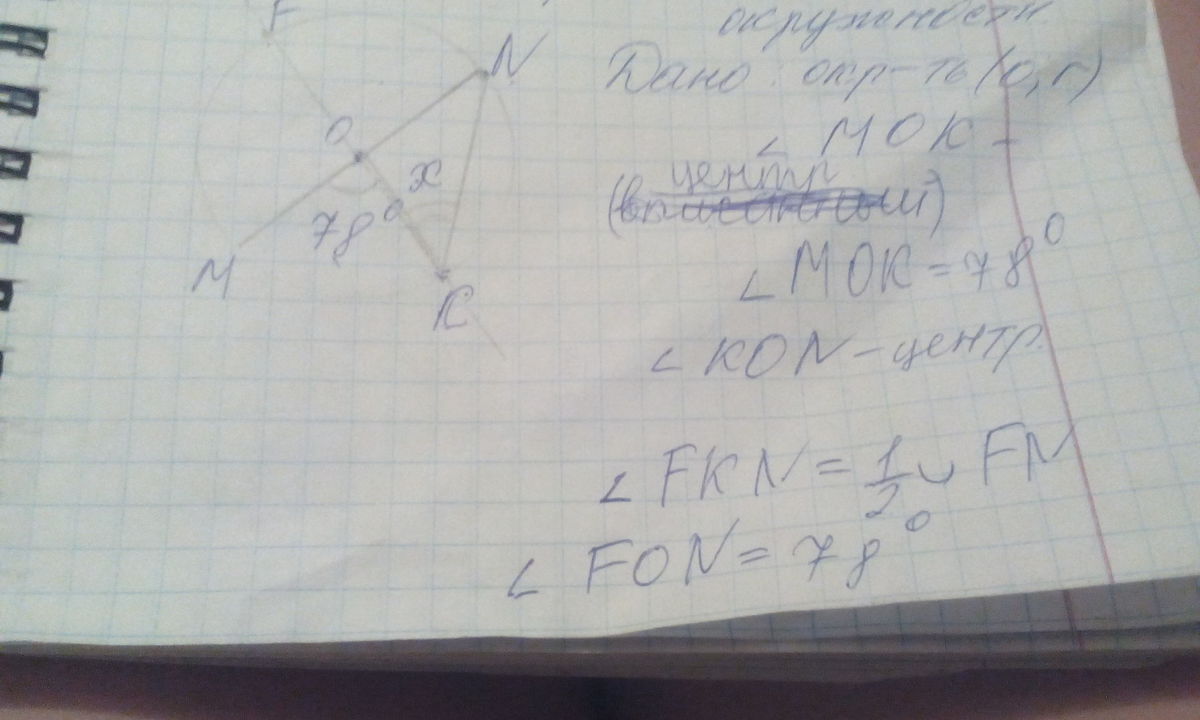 F
N
O
x
78°
M
K
окружности
Дано: окр-ть (O, r)
∠ MOK -
центр
(вписанный)
∠ MOK = 78°
∠ KON - центр.
∠ FKN = 1/2 ◡ FN
∠ FON = 78°